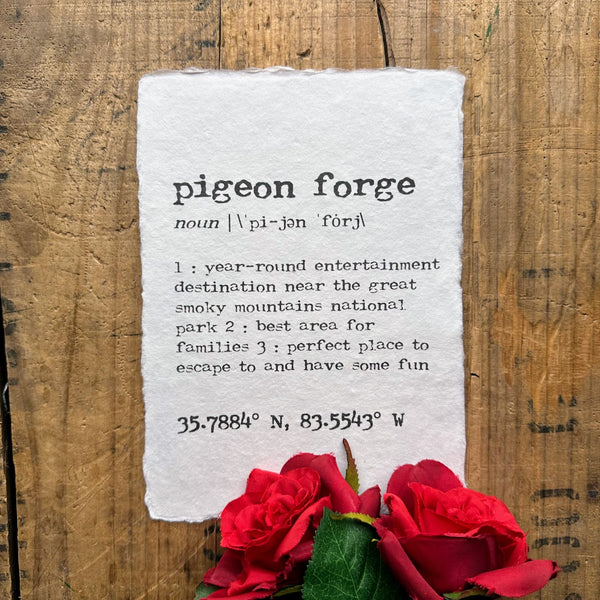 pigeon forge
noun | \ˈpi-jən ˈfȯrj\
1 : year-round entertainment
destination near the great
smoky mountains national
park 2 : best area for
families 3 : perfect place to
escape to and have some fun
35.7884° N, 83.5543° W